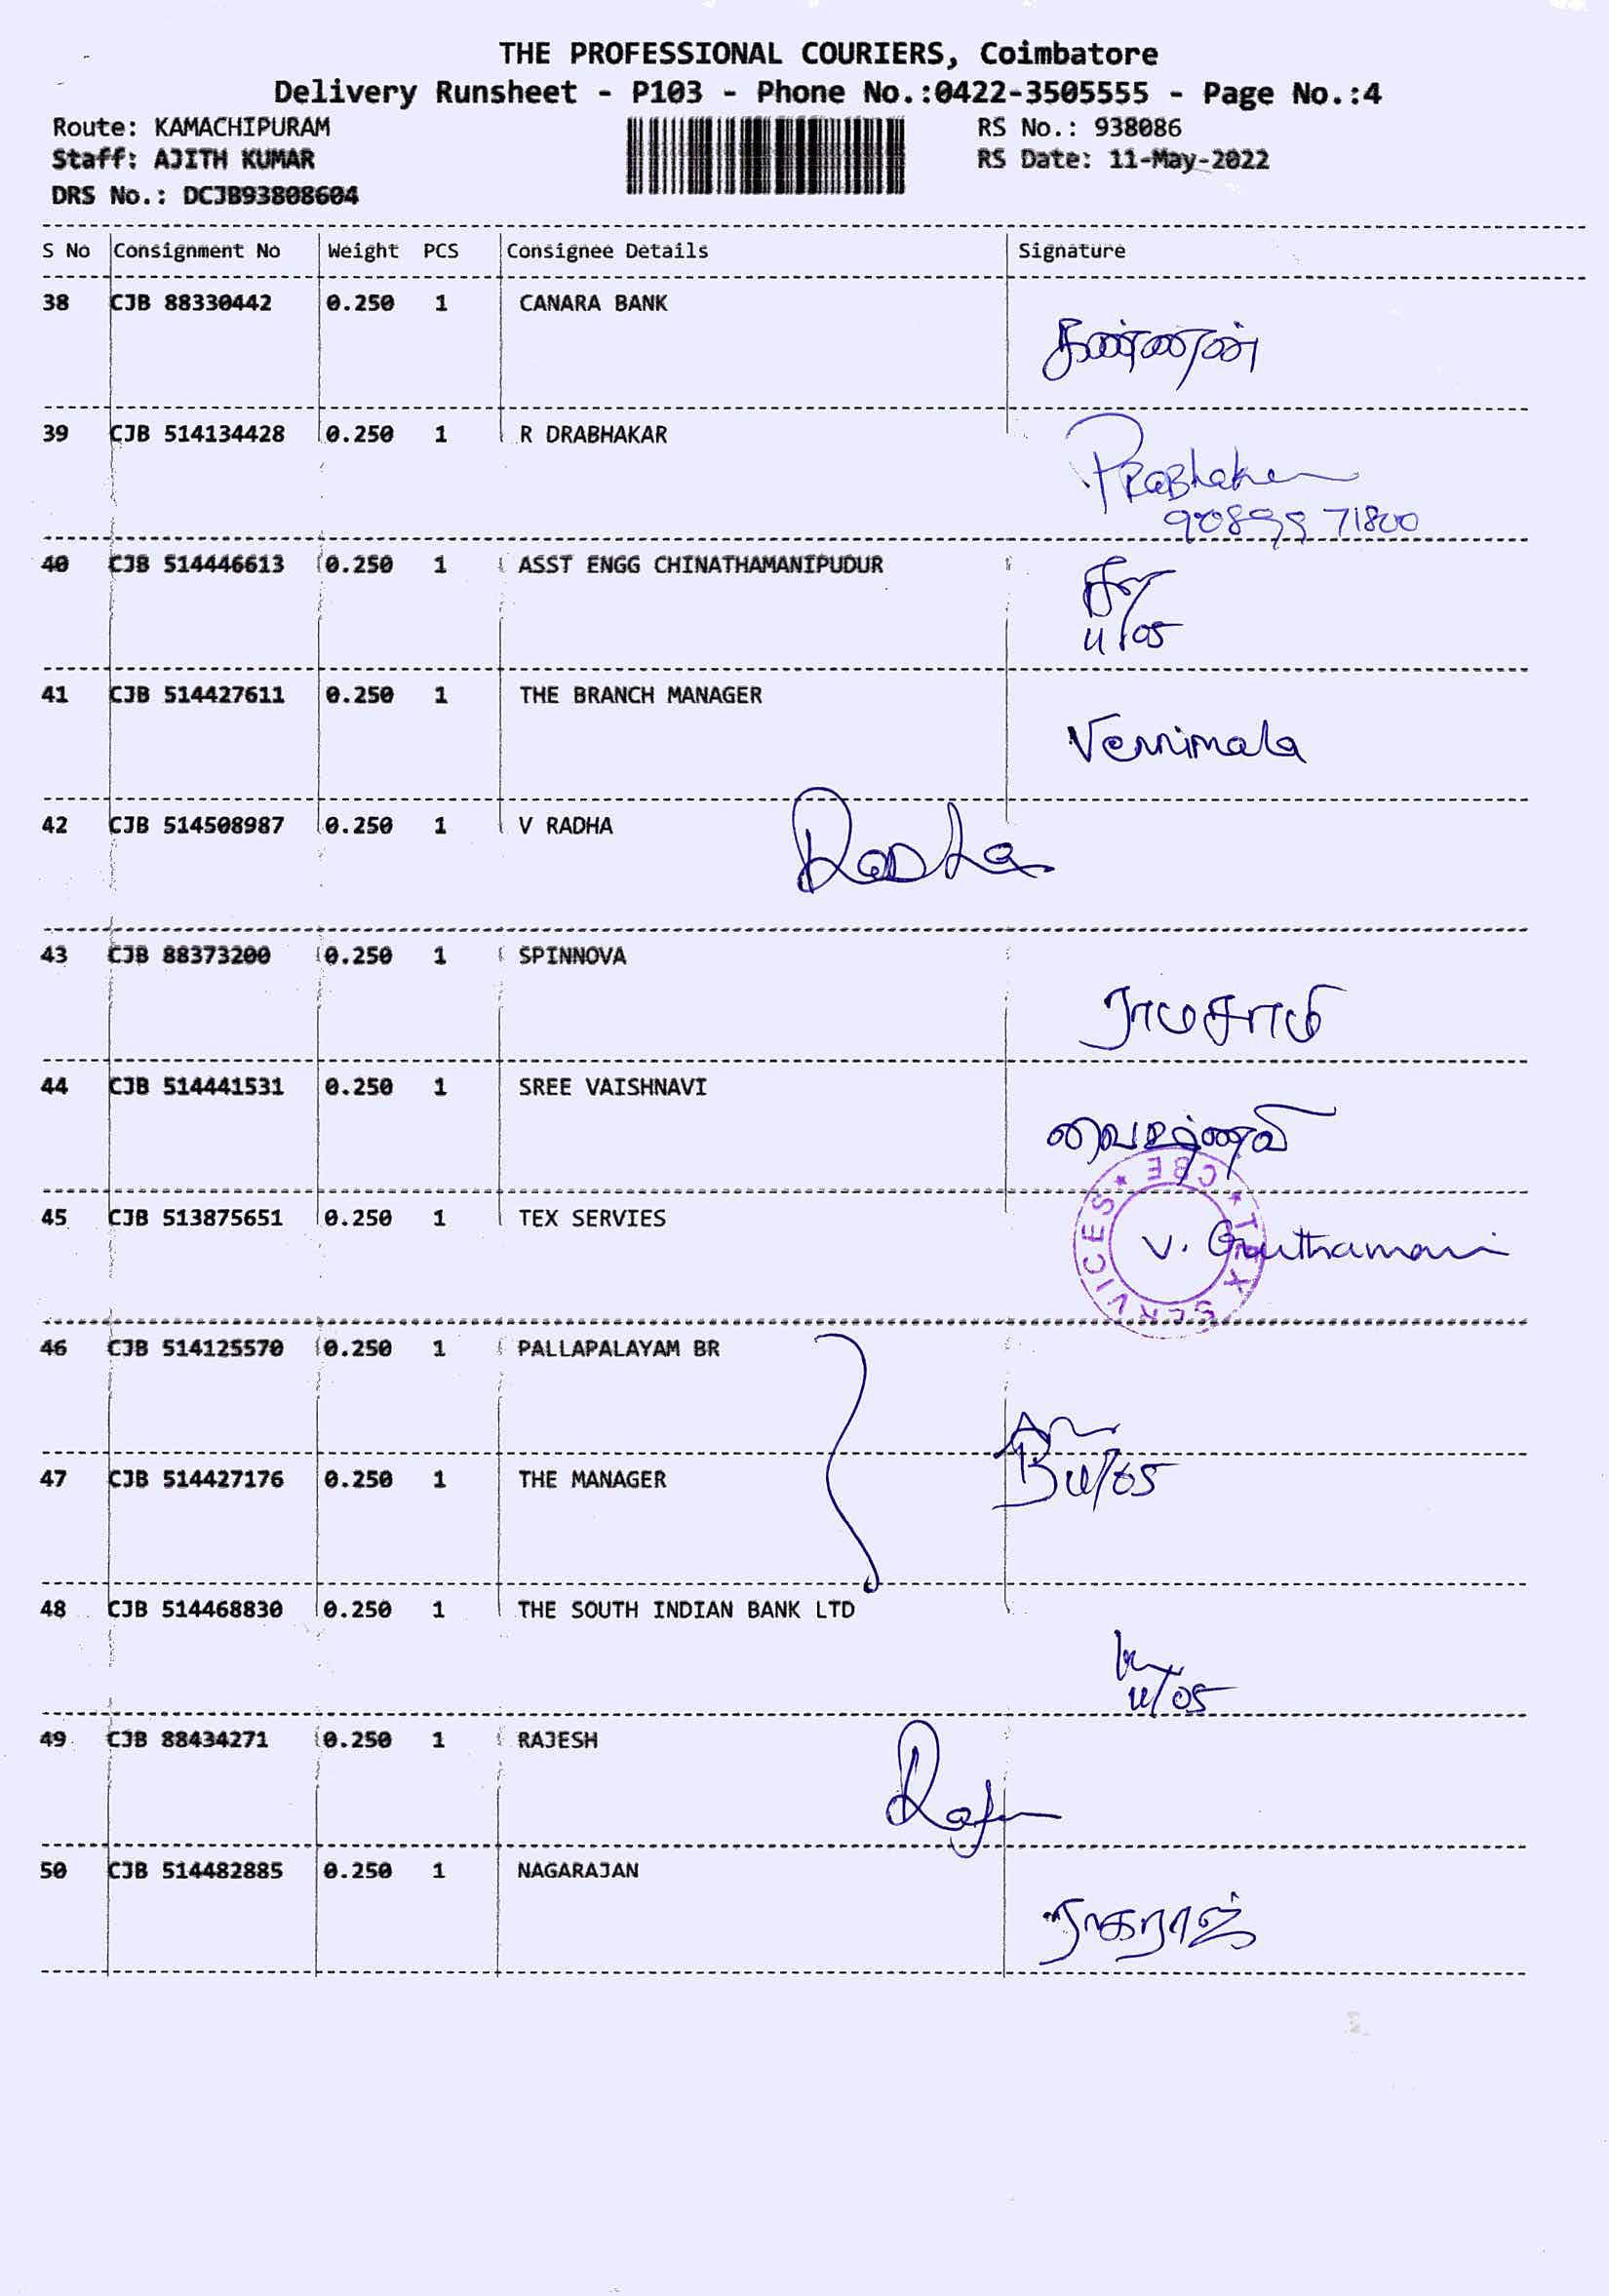 THE PROFESSIONAL COURIERS, Coimbatore
Delivery Runsheet - P103 - Phone No.:0422-3505555 - Page No.:4
Route: KAMACHIPURAM RS No.: 938086
Staff: AJITH KUMAR RS Date: 11-May-2022
DRS No.: DCJB93808604
S No Consignment No Weight PCS Consignee Details Signature
38 CJB 88330442 0.250 1 CANARA BANK
கண்ணன்
39 CJB 514134428 0.250 1 R DRABHAKAR
40 CJB 514446613 0.250 1 ASST ENGG CHINATHAMANIPUDUR
11/05
41 CJB 514427611 0.250 1 THE BRANCH MANAGER
42 CJB 514508987 0.250 1 V RADHA
Radha
43 CJB 88373200 0.250 1 SPINNOVA
ராமசாமி
44 CJB 514441531 0.250 1 SREE VAISHNAVI
வைஷ்ணவி
45 CJB 513875651 0.250 1 TEX SERVIES
★ TEX SERVICES ★ CBE
V.
46 CJB 514125570 0.250 1 PALLAPALAYAM BR
47 CJB 514427176 0.250 1 THE MANAGER
11/05
48 CJB 514468830 0.250 1 THE SOUTH INDIAN BANK LTD
11/05
49 CJB 88434271 0.250 1 RAJESH
50 CJB 514482885 0.250 1 NAGARAJAN
நாகராஜ்